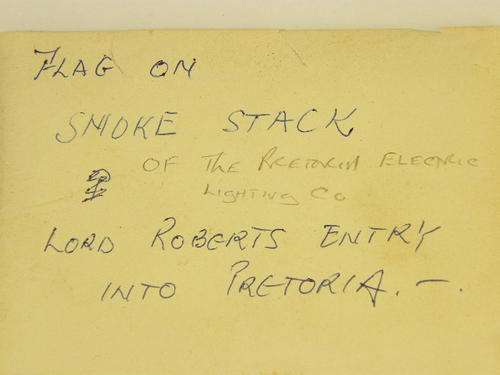 FLAG ON
SMOKE STACK
OF THE PRETORIA ELECTRIC
LIGHTING CO
LORD ROBERTS ENTRY
INTO PRETORIA. -.